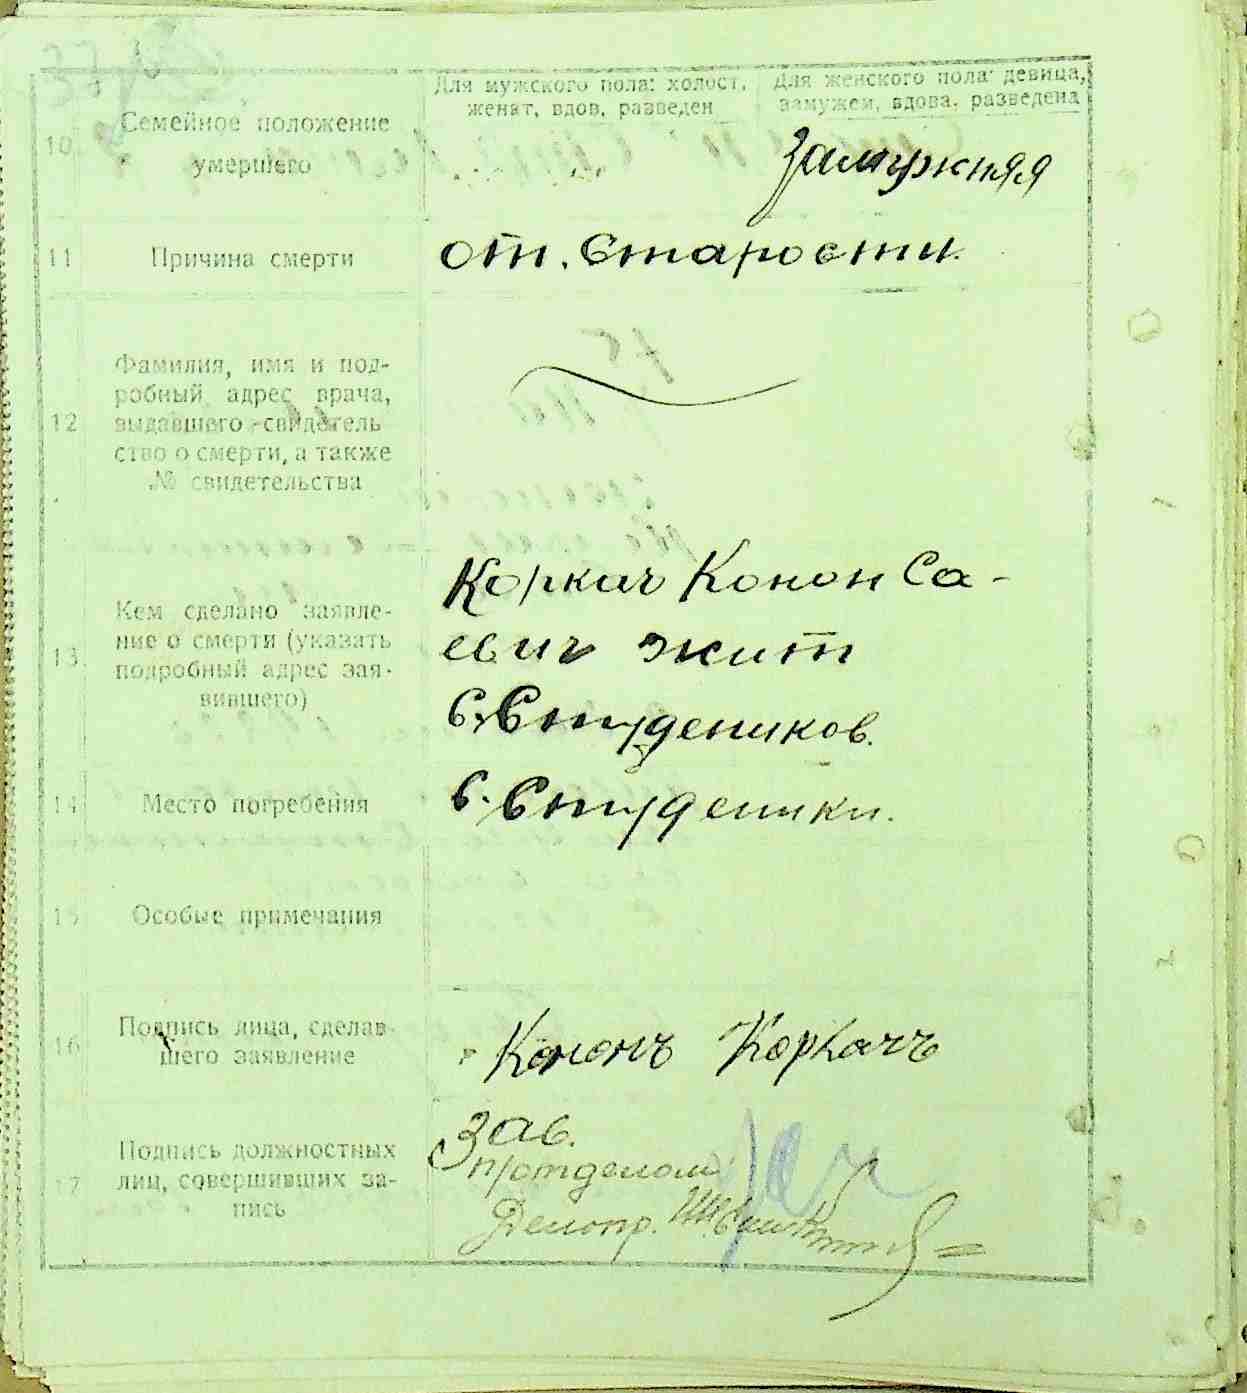 Для мужского пола: холост, женат, вдов, разведен
Для женского пола: девица, замужем, вдова, разведена
10 Семейное положение умершего
замужняя
11 Причина смерти
от. старости.
12
Фамилия, имя и под-
робный адрес врача,
выдавшего свидетель
ство о смерти, а также
№ свидетельства
13.
Кем сделано заявле-
ние о смерти (указать
подробный адрес зая-
вившего)
Коркач Конон Са-
евич жит
с. Студеников.
14 Место погребения
с. Студеники.
15 Особые примечания
16
Подпись лица, сделав-
шего заявление
Кононъ Коркачъ
17
Подпись должностных
лиц, совершивших за-
пись
Зав.
п/отделом
Делопр.